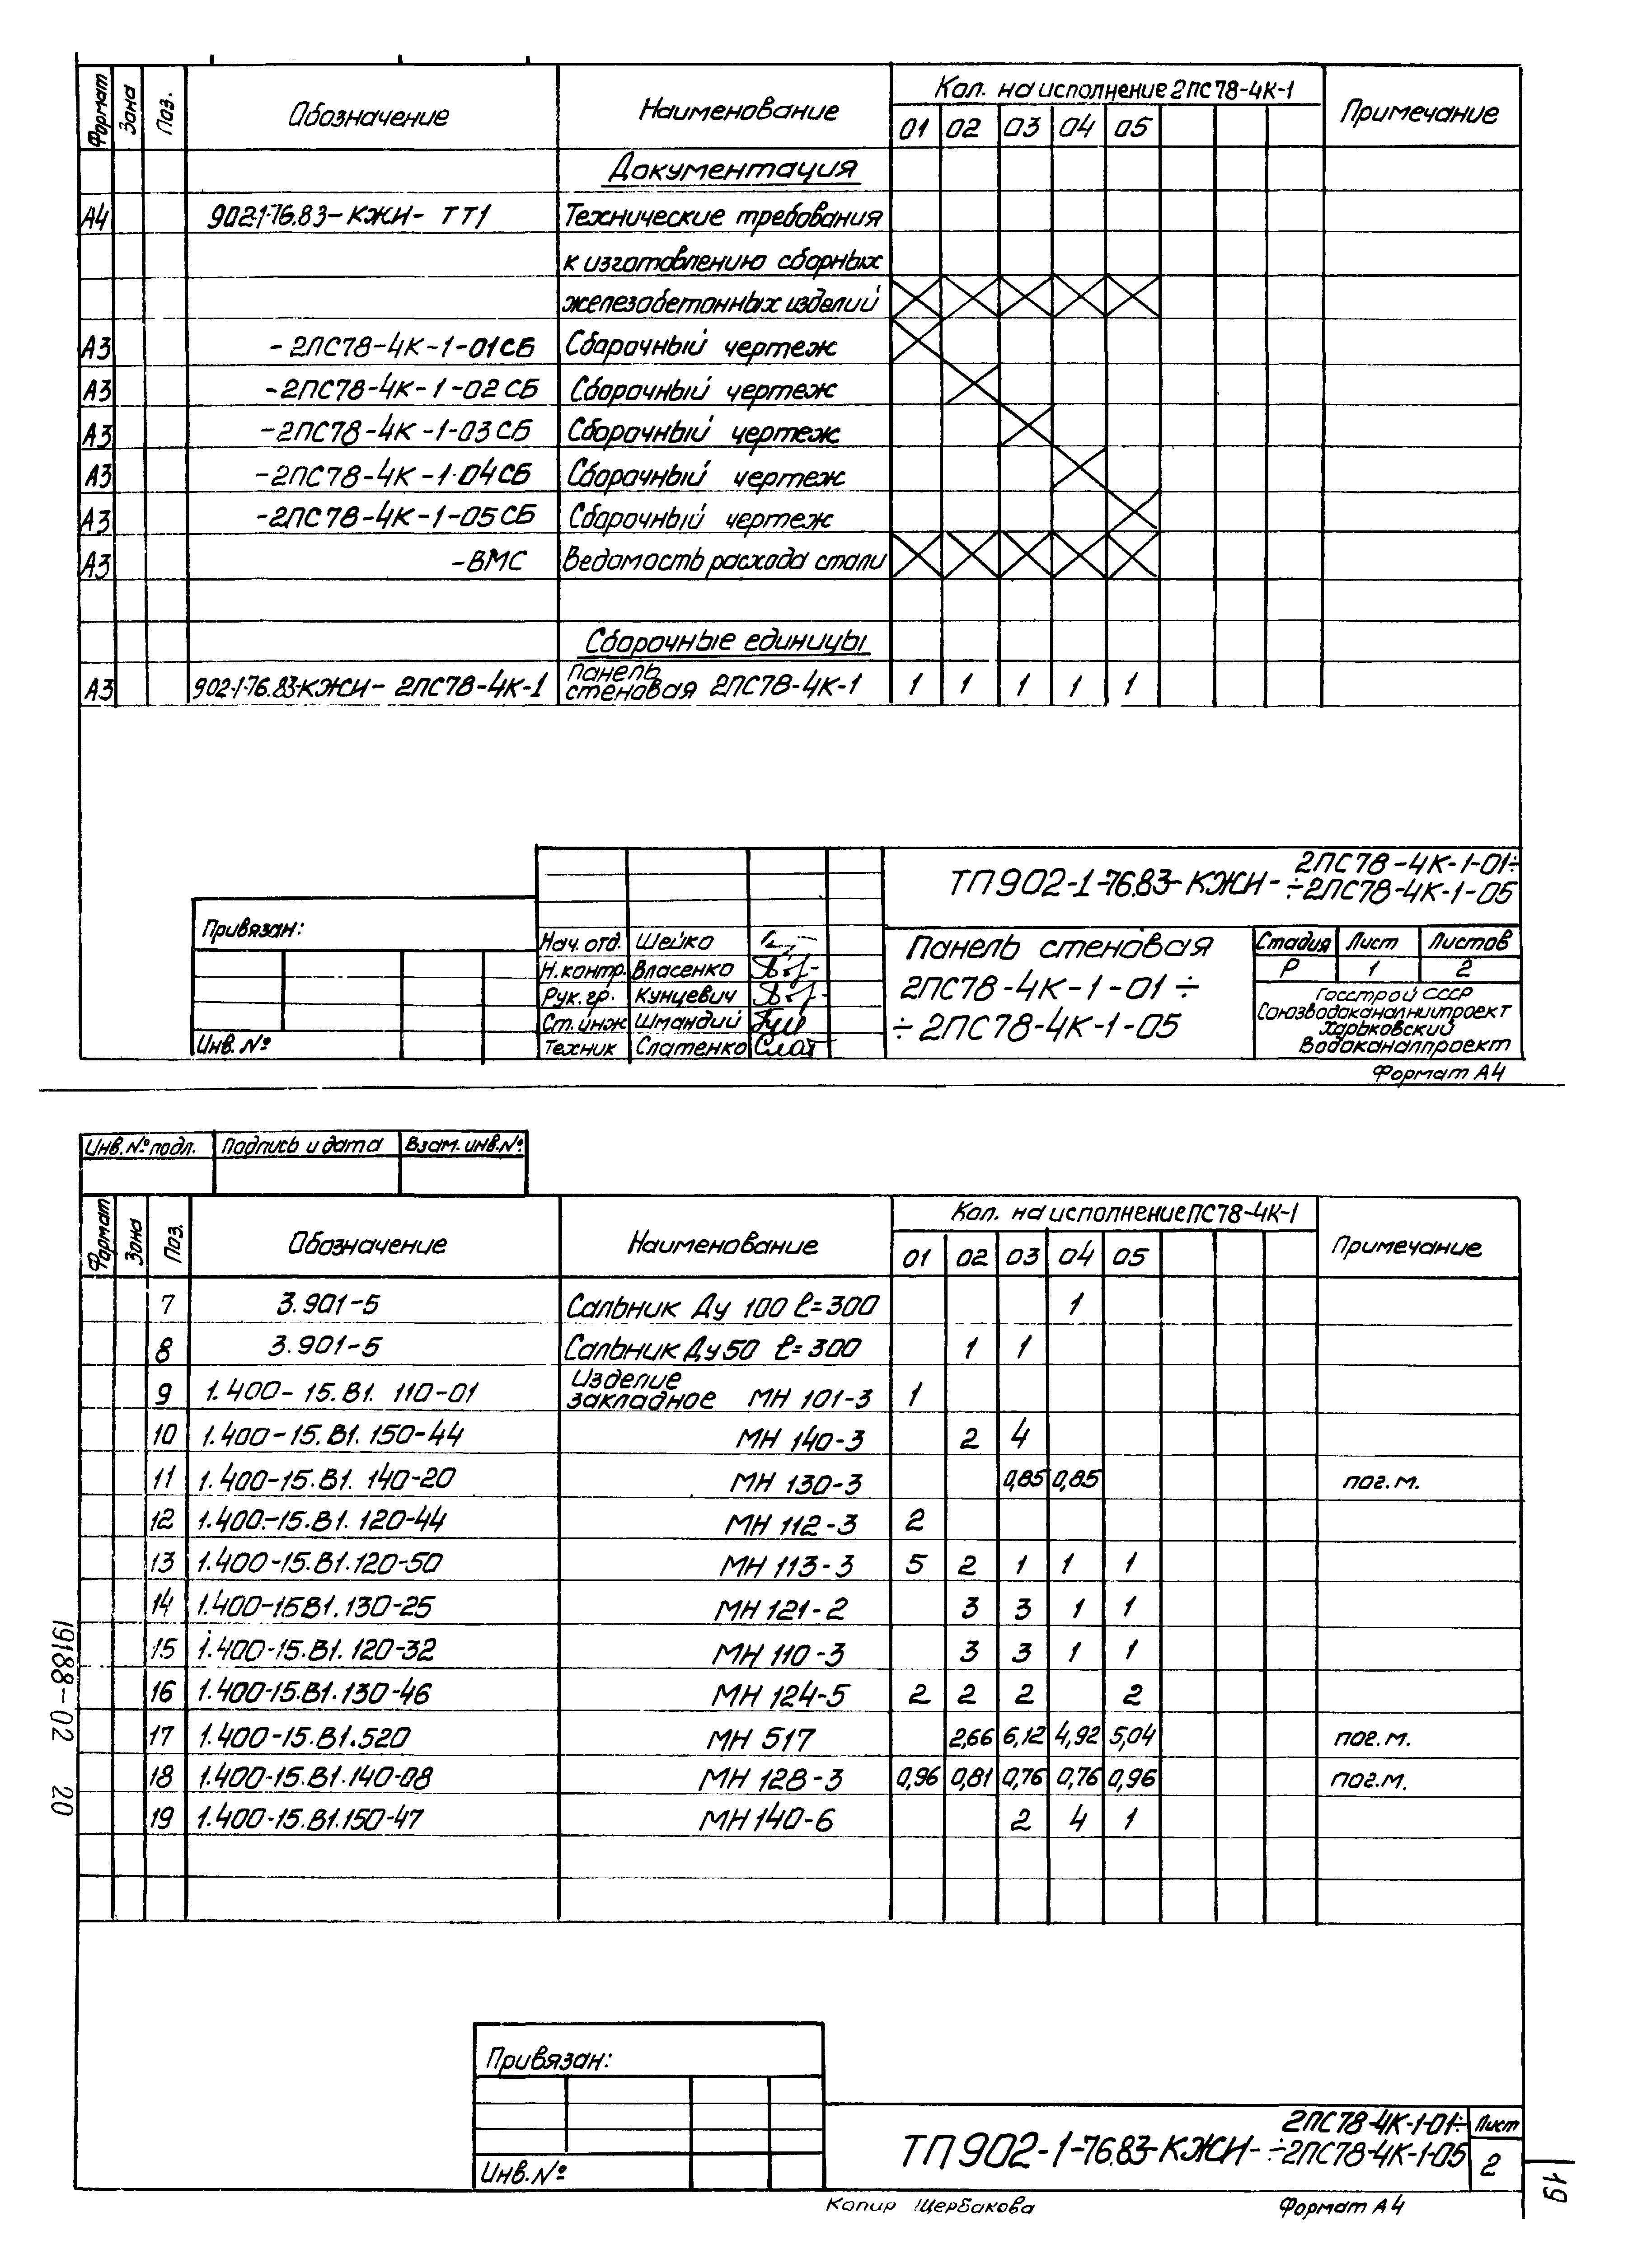 Формат Зона Поз. Обозначение Наименование Кол. на исполнение 2ПС78-4К-1 Примечание
01 02 03 04 05
Документация
А4 902-1-76.83-КЖИ- ТТ1 Технические требования
к изготовлению сборных
железобетонных изделий
А3 -2ПС78-4К-1-01СБ Сборочный чертеж
А3 -2ПС78-4К-1-02СБ Сборочный чертеж
А3 -2ПС78-4К-1-03СБ Сборочный чертеж
А3 -2ПС78-4К-1-04СБ Сборочный чертеж
А3 -2ПС78-4К-1-05СБ Сборочный чертеж
А3 -ВМС Ведомость расхода стали
Сборочные единицы
А3 902-1-76.83-КЖИ- 2ПС78-4К-1 Панель стеновая 2ПС78-4К-1 1 1 1 1 1
ТП902-1-76.83-КЖИ- 2ПС78-4К-1-01÷
÷2ПС78-4К-1-05
Привязан:
Инв.№
Нач. отд. Шейко
Н.контр. Власенко
Рук. гр. Кунцевич
Ст. инж Шмандий
Техник Слатенко
Панель стеновая
2ПС78-4К-1-01÷
÷2ПС78-4К-1-05
Стадия Лист Листов
Р 1 2
Госстрой СССР
Союзводоканалниипроект
Харьковский
Водоканалпроект
Формат А4
Инв.№подл. Подпись и дата Взам. инв.№
Формат Зона Поз. Обозначение Наименование Кол. на исполнение ПС78-4К-1 Примечание
01 02 03 04 05
7 3.901-5 Сальник Ду 100 ℓ=300 1
8 3.901-5 Сальник Ду50 ℓ=300 1 1
9 1.400-15.В1. 110-01 Изделие закладное МН 101-3 1
10 1.400-15.В1. 150-44 МН 140-3 2 4
11 1.400-15.В1. 140-20 МН 130-3 0,85 0,85 пог.м.
12 1.400.-15.В1. 120-44 МН 112-3 2
13 1.400-15.В1.120-50 МН 113-3 5 2 1 1 1
14 1.400-15В1.130-25 МН 121-2 3 3 1 1
15 1.400-15.В1. 120-32 МН 110-3 3 3 1 1
16 1.400-15.В1.130-46 МН 124-5 2 2 2 2
17 1.400-15.В1.520 МН 517 2,66 6,12 4,92 5,04 пог.м.
18 1.400-15.В1.140-08 МН 128-3 0,96 0,81 0,76 0,76 0,96 пог.м.
19 1.400-15.В1.150-47 МН140-6 2 4 1
19188-02 20
Привязан:
Инв.№
ТП902-1-76.83-КЖИ- 2ПС78-4К-1-01÷
÷2ПС78-4К-1-05
Лист
2
Копир Щербакова Формат А4
19